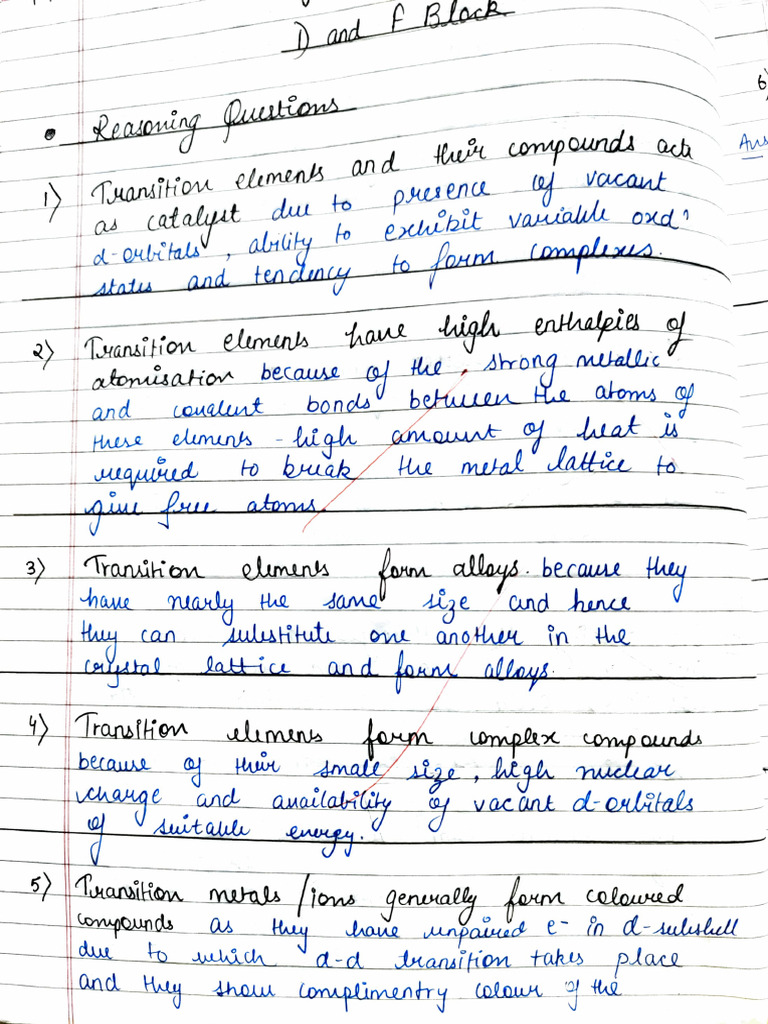 D and f Block
• Reasoning Questions
1) Transition elements and their compounds acts
as catalyst due to presence of vacant
d-orbitals, ability to exhibit variable oxdⁿ
states and tendency to form complexes.
2) Transition elements have high enthalpies of
atomisation because of the strong metallic
and covalent bonds between the atoms of
these elements - high amount of heat is
required to break the metal lattice to
give free atoms.
3) Transition elements form alloys. because they
have nearly the same size and hence
they can substitute one another in the
crystal lattice and form alloys.
4) Transition elements form complex compounds
because of their small size, high nuclear
charge and availability of vacant d-orbitals
of suitable energy.
5) Transition metals/ions generally form coloured
compounds as they have unpaired e- in d-subshell
due to which d-d transition takes place
and they show complimentry colour of the
6)
Ans